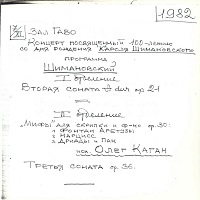 1982
2/XI Зал Гаво
Концерт посвященный 100-летию
со дня рождения Кароля Шимановского
программа
Шимановский
I отделение
Вторая соната A dur op 21
II отделение
"Мифы" для скрипки и ф-но ор. 30:
1 Фонтан Аретузы
2 Нарцисс
3 Дриады и Пан
исп. Олег Каган
Третья соната ор 36.